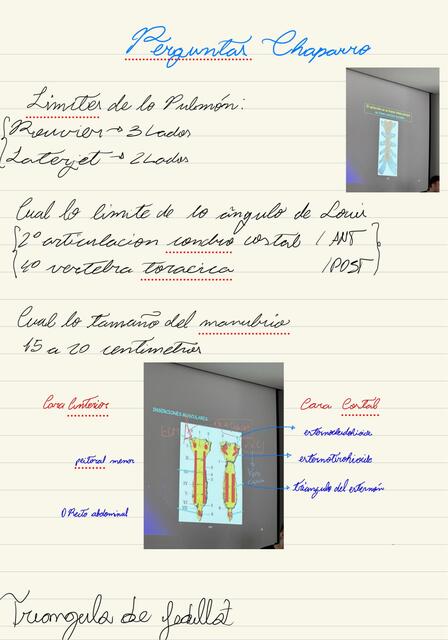 Perguntas Chaparro
Limites de lo Pulmón:
Rouvier → 3 Lados
Laterjet → 2 Lados
Cual lo limite de lo ângulo de Louis
2º articulacion condro costal / ANT
4º vertebra toracica / POST
Cual lo tamaño del manubrio
15 a 20 centimetros
Cara Anterior
Cara Costal
INSERCIONES MUSCULARES
esternocleidohioide
peitoral menor
esternotirohioide
triangulo del esternón
O Recto abdominal
Triangulo de